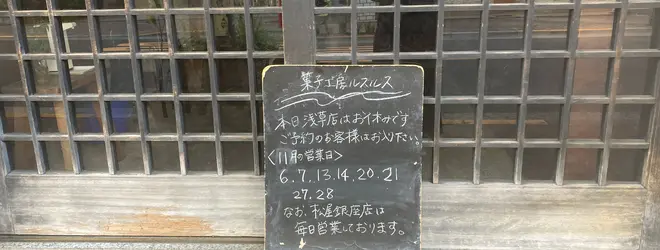 菓子工房ルスルス
本日浅草店はお休みです
ご予約のお客様はお入り下さい。
〈11月の営業日〉
6.7.13.14.20.21
27.28
なお、松屋銀座店は
毎日営業しております。